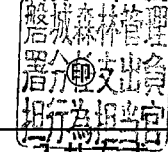 磐城森林管理
署分任㊞支出負
担行為担当官